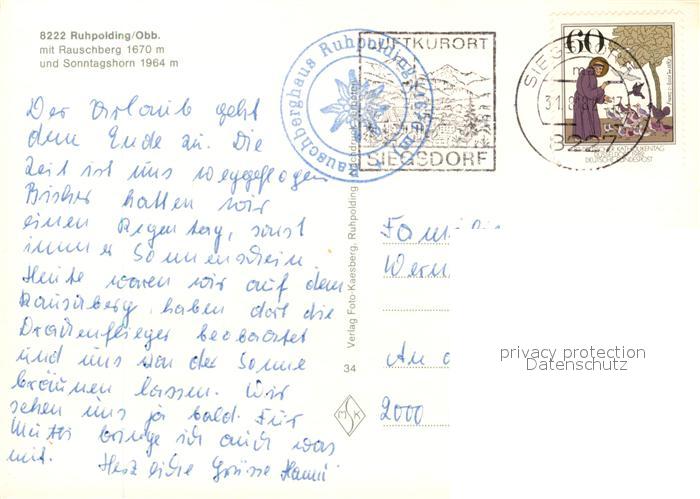 8222 Ruhpolding/Obb.
mit Rauschberg 1670 m
und Sonntagshorn 1964 m
Rauschberghaus Ruhpolding (1670 m)
LUFTKURORT
SIEGSDORF
SIEGSDORF
31.8.
8227
60
KATHOLIKENTAG
DEUTSCHE BUNDESPOST
Der Urlaub geht
dem Ende zu. Die
Zeit ist uns weggeflogen
Bisher hatten wir
einen Regentag, sonst
immer Sonnenschein.
Heute waren wir auf dem
Rauschberg, haben dort die
Drachenflieger beobachtet
und uns von der Sonne
bräunen lassen. Wir
sehen uns ja bald. Für
Mutti bringe ich auch was
mit. Herzliche Grüsse Hanni
Verlag Foto-Kaesberg, Ruhpolding
34
MSK
Wern
An
2000
privacy protection
Datenschutz